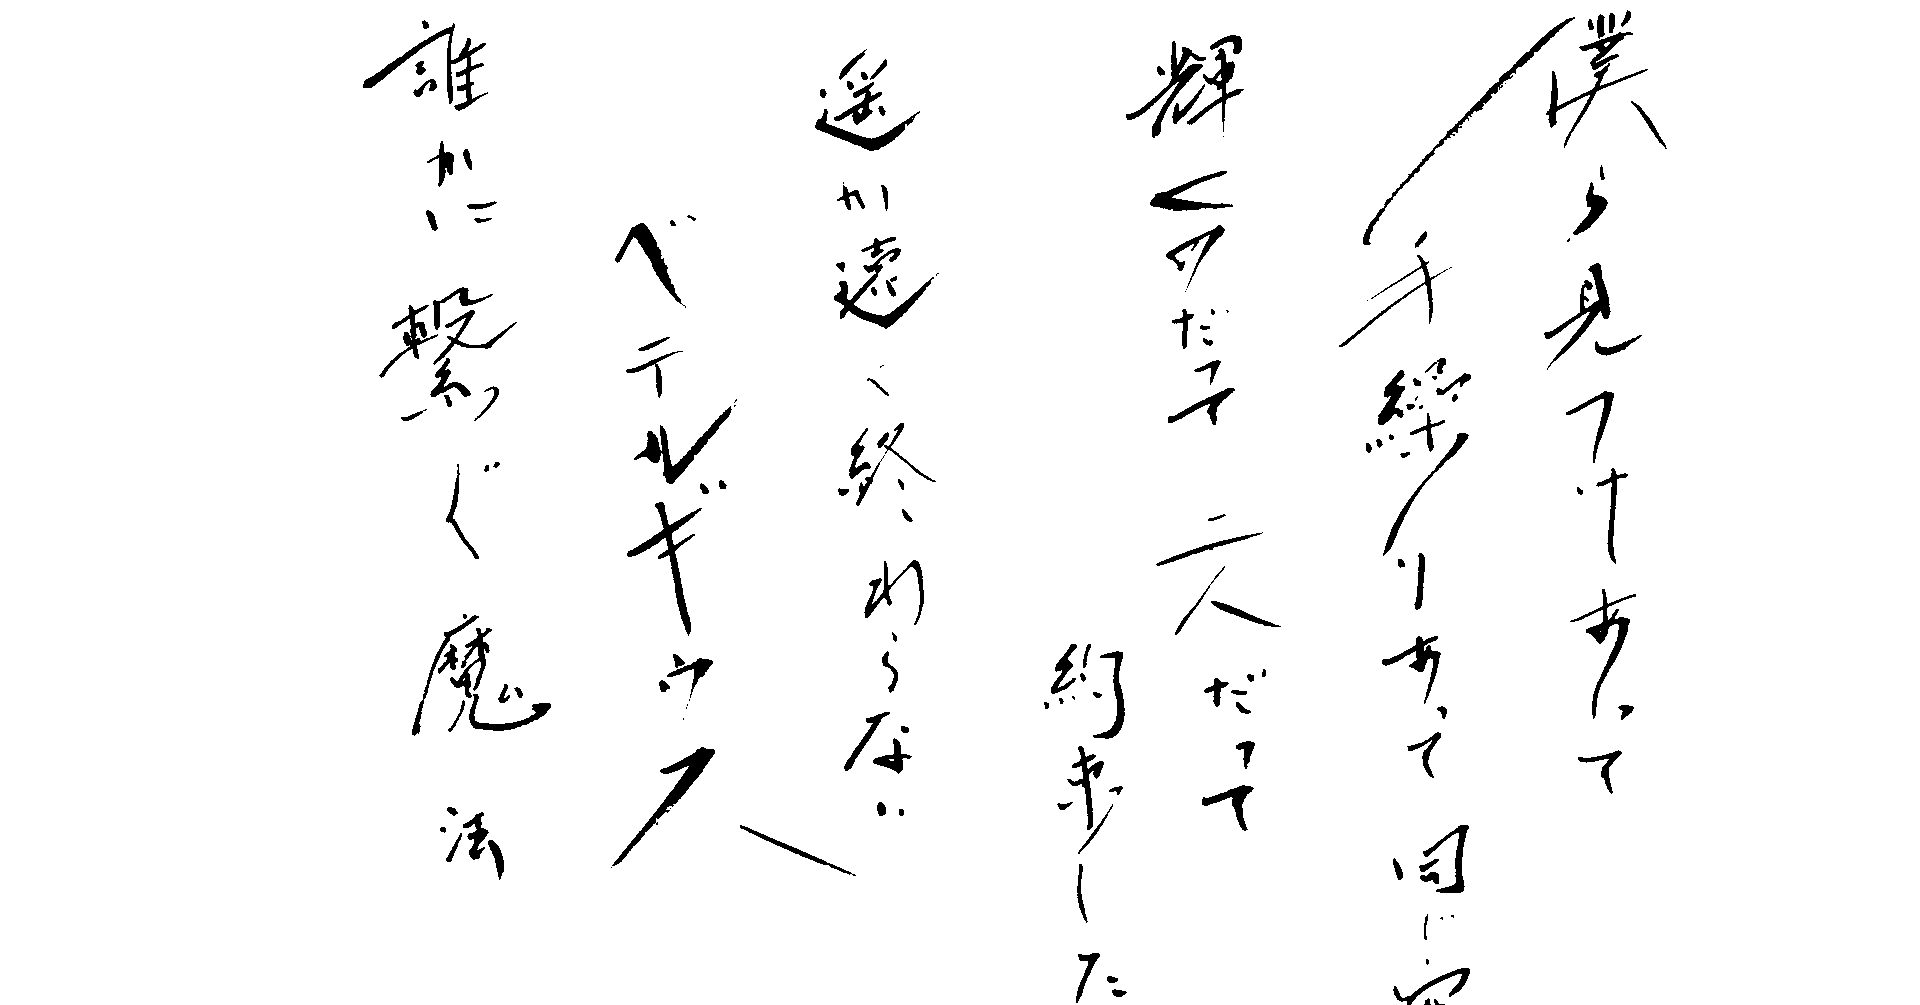 僕ら見つけあって
手繰りあって 同じ空
輝くのだって 二人だって
約束した
遥か遠く終わらない
ベテルギウス
誰かに繋ぐ魔法